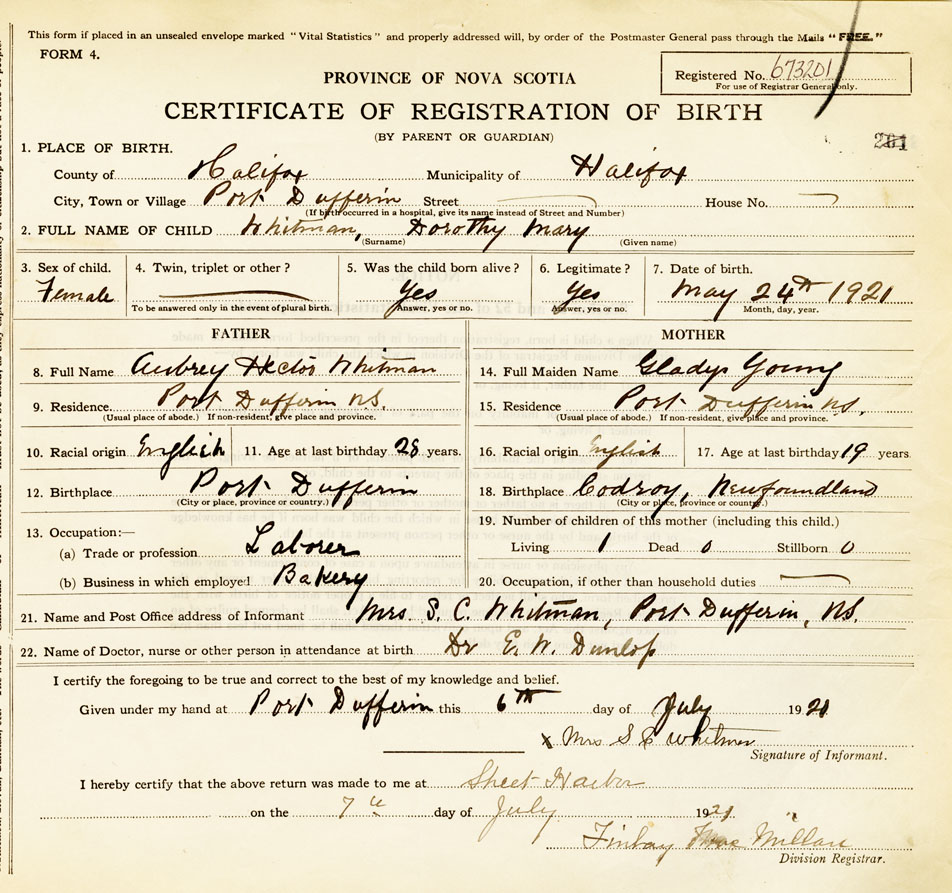 This form if placed in an unsealed envelope marked "Vital Statistics" and properly addressed will, by order of the Postmaster General pass through the Mails "FREE."
FORM 4.
PROVINCE OF NOVA SCOTIA
Registered No. 673201
For use of Registrar General only.
CERTIFICATE OF REGISTRATION OF BIRTH
(BY PARENT OR GUARDIAN)
1. PLACE OF BIRTH.
County of Halifax Municipality of Halifax
City, Town or Village Port Dufferin Street House No.
(If birth occurred in a hospital, give its name instead of Street and Number)
2. FULL NAME OF CHILD Whitman, Dorothy Mary
(Surname) (Given name)
3. Sex of child. 4. Twin, triplet or other? 5. Was the child born alive? 6. Legitimate? 7. Date of birth.
Female Yes Yes May 24th 1921
To be answered only in the event of plural birth. Answer, yes or no. Answer, yes or no. Month, day, year.
FATHER MOTHER
8. Full Name Aubrey Hector Whitman 14. Full Maiden Name Gladys Young
9. Residence. Port Dufferin NS. 15. Residence Port Dufferin NS.
(Usual place of abode.) If non-resident, give place and province. (Usual place of abode.) If non-resident, give place and province.
10. Racial origin English 11. Age at last birthday 28 years. 16. Racial origin English 17. Age at last birthday 19 years
12. Birthplace Port Dufferin 18. Birthplace Codroy, Newfoundland
(City or place, province or country.) (City or place, province or country.)
13. Occupation:— 19. Number of children of this mother (including this child.)
(a) Trade or profession Laborer Living 1 Dead 0 Stillborn 0
(b) Business in which employed Bakery 20. Occupation, if other than household duties
21. Name and Post Office address of Informant Mrs. S. C. Whitman, Port Dufferin, NS.
22. Name of Doctor, nurse or other person in attendance at birth Dr E. W. Dunlop
I certify the foregoing to be true and correct to the best of my knowledge and belief.
Given under my hand at Port Dufferin this 6th day of July 1921
x Mrs S C Whitman
Signature of Informant.
I hereby certify that the above return was made to me at Sheet Harbor
on the 7th day of July 1921
Finlay MacMillan
Division Registrar.